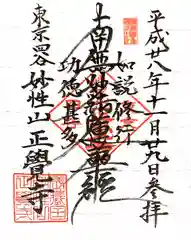 平成廿八年十一月廿九日参拝
如説修行
南無妙法蓮華經
功徳甚多
東京四谷
妙性山 正覺寺